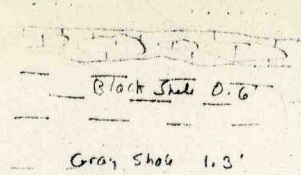 Black Shale 0.6'
Gray Shale 1.3'